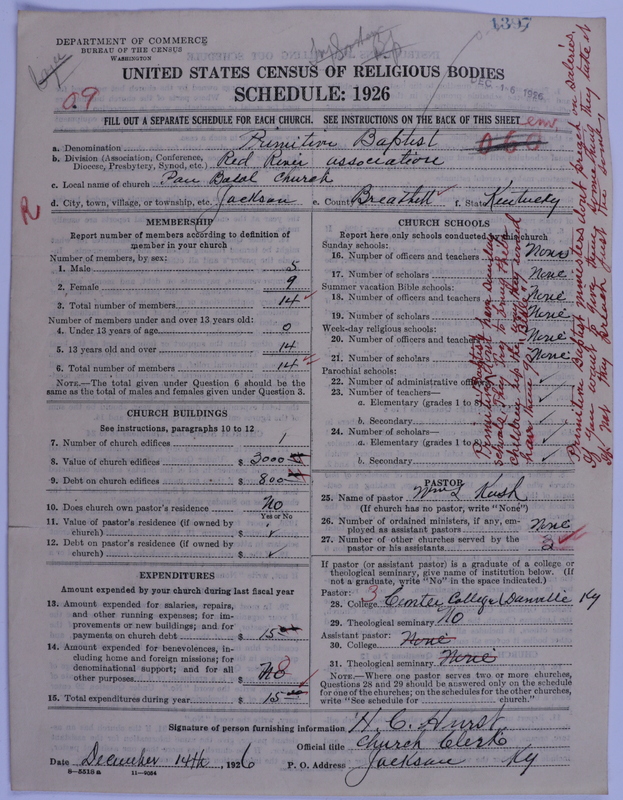 1397
DEPARTMENT OF COMMERCE
BUREAU OF THE CENSUS
WASHINGTON
DEC 16 1926
UNITED STATES CENSUS OF RELIGIOUS BODIES
09
SCHEDULE: 1926
FILL OUT A SEPARATE SCHEDULE FOR EACH CHURCH. SEE INSTRUCTIONS ON THE BACK OF THIS SHEET
a. Denomination Primitive Baptist
060
b. Division (Association, Conference, Diocese, Presbytery, Synod, etc.) Red River association
c. Local name of church Pan Church
d. City, town, village, or township, etc. Jackson e. County Breathitt f. State Kentucky
R
MEMBERSHIP
Report number of members according to definition of
member in your church
Number of members, by sex:
1. Male 5
2. Female 9
3. Total number of members 14
Number of members under and over 13 years old:
4. Under 13 years of age 0
5. 13 years old and over 14
6. Total number of members 14
NOTE.—The total given under Question 6 should be the
same as the total of males and females given under Question 3.
CHURCH BUILDINGS
See instructions, paragraphs 10 to 12
7. Number of church edifices 1
8. Value of church edifices $ 3000
9. Debt on church edifices $ 800
10. Does church own pastor's residence? No
Yes or No
11. Value of pastor's residence (if owned by
church) $ ✓
12. Debt on pastor's residence (if owned by
church) $ ✓
EXPENDITURES
Amount expended by your church during last fiscal year
13. Amount expended for salaries, repairs,
and other running expenses; for im-
provements or new buildings; and for
payments on church debt $ 15
14. Amount expended for benevolences, in-
cluding home and foreign missions; for
denominational support; and for all
other purposes $ No
15. Total expenditures during year $ 15
CHURCH SCHOOLS
Report here only schools conducted by this church
Sunday schools:
16. Number of officers and teachers None
17. Number of scholars None
Summer vacation Bible schools:
18. Number of officers and teachers None
19. Number of scholars None
Week-day religious schools:
20. Number of officers and teachers None
21. Number of scholars None
Parochial schools:
22. Number of administrative officers ✓
23. Number of teachers—
a. Elementary (grades 1 to 8) ✓
b. Secondary ✓
24. Number of scholars—
a. Elementary (grades 1 to 8) ✓
b. Secondary ✓
PASTOR
25. Name of pastor Wm L Rush
(If church has no pastor, write "None")
26. Number of ordained ministers, if any, em-
ployed as assistant pastors None
27. Number of other churches served by the
pastor or his assistants 2
If pastor (or assistant pastor) is a graduate of a college or
theological seminary, give name of institution below. (If
not a graduate, write "No" in the space indicated.)
Pastor: 3
28. College Center College Danville Ky
29. Theological seminary No
Assistant pastor:
30. College None
31. Theological seminary None
NOTE.—Where one pastor serves two or more churches,
Questions 28 and 29 should be answered only on the schedule
for one of the churches; on the schedules for the other churches,
write "See schedule for church."
Signature of person furnishing information H. C. Hurst
Official title Church Clerk
Date December 14th, 1926 P. O. Address Jackson Ky
8—5518a 11—9054
Primitive Baptist
schools they to bring their
children up the
Primitive Baptist ministers dont preach on salaries.
If you want to give them something they take it
If not they preach just the same